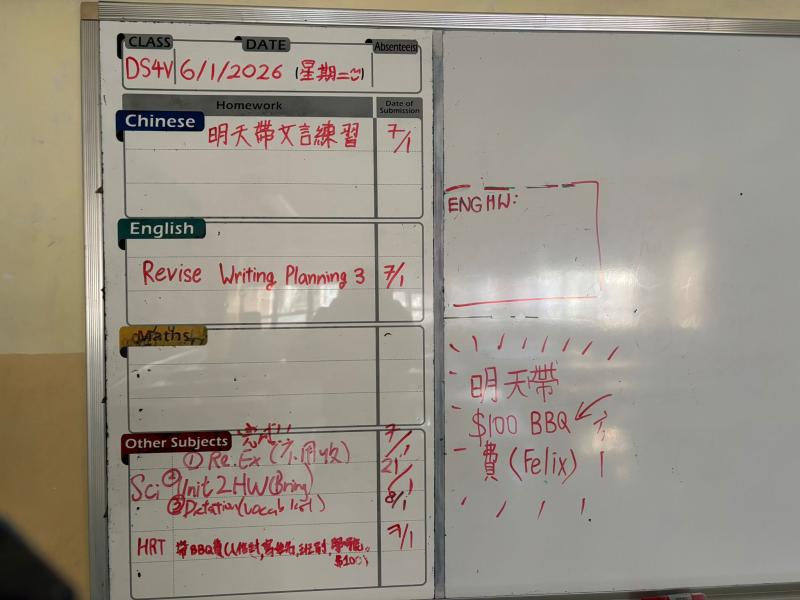 CLASS DATE Absentee(s)
DS4V 6/1/2026 (星期二)
Homework Date of Submission
Chinese 明天帶文言練習 7/1
English
Revise Writing Planning 3 7/1
Maths
Other Subjects 完成!!
① Re.Ex (不用收) 7/1
Sci ② Unit 2 HW (Bring) 21/1
③ Dictation (vocab list) 8/1
HRT 帶BBQ費(入信封,寫姓名,班別,學號。 7/1
$100)
ENG HW:
明天帶
$100 BBQ
費 (Felix)